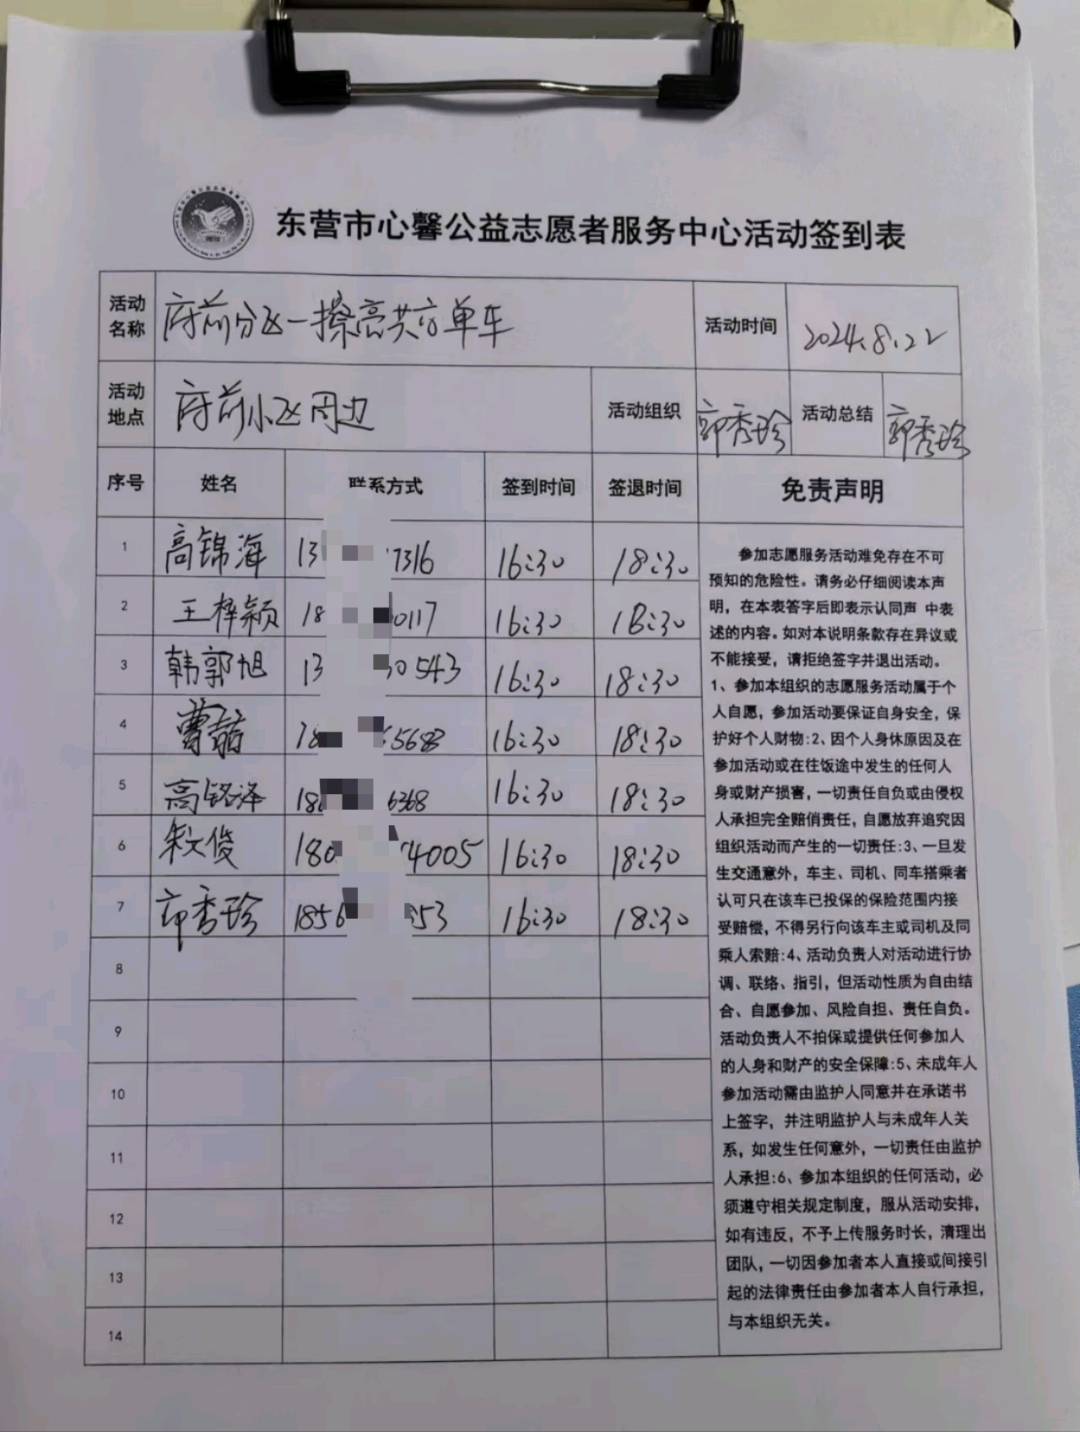 东营市心馨公益志愿者服务中心活动签到表
活动名称 府前分区一擦亮共享单车 活动时间 2024.8.22
活动地点 府前小区周边 活动组织 郭秀珍 活动总结 郭秀珍
序号 姓名 联系方式 签到时间 签退时间 免责声明
1 高锦海 13 7316 16:30 18:30
2 王梓颖 18 0117 16:30 18:30
3 韩郭旭 13 30543 16:30 18:30
4 曹喆 18 5683 16:30 18:30
5 高铭泽 18 6368 16:30 18:30
6 俊 180 4005 16:30 18:30
7 郭秀珍 1856 353 16:30 18:30
8
9
10
11
12
13
14
参加志愿服务活动难免存在不可
预知的危险性。请务必仔细阅读本声
明，在本表签字后即表示认同声 中表
述的内容。如对本说明条款存在异议或
不能接受，请拒绝签字并退出活动。
1、参加本组织的志愿服务活动属于个
人自愿，参加活动要保证自身安全，保
护好个人财物:2、因个人身休原因及在
参加活动或在往饭途中发生的任何人
身或财产损害，一切责任自负或由侵权
人承担完全赔偿责任，自愿放弃追究因
组织活动而产生的一切责任:3、一旦发
生交通意外，车主、司机、同车搭乘者
认可只在该车已投保的保险范围内接
受赔偿，不得另行向该车主或司机及同
乘人索赔:4、活动负责人对活动进行协
调、联络、指引，但活动性质为自由结
合、自愿参加、风险自担、责任自负。
活动负责人不拍保或提供任何参加人
的人身和财产的安全保障:5、未成年人
参加活动需由监护人同意并在承诺书
上签字，并注明监护人与未成年人关
系，如发生任何意外，一切责任由监护
人承担:6、参加本组织的任何活动，必
须遵守相关规定制度，服从活动安排，
如有违反，不予上传服务时长，清理出
团队，一切因参加者本人直接或间接引
起的法律责任由参加者本人自行承担，
与本组织无关。